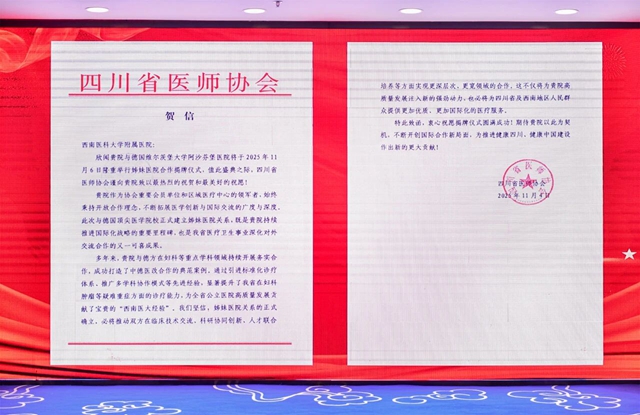 四川省医师协会
贺信
西南医科大学附属医院：
欣闻贵院与德国维尔茨堡大学阿沙芬堡医院将于2025年11
月6日隆重举行姊妹医院合作揭牌仪式，值此盛典之际，四川省
医师协会谨向贵院致以最热烈的祝贺和最美好的祝愿！
贵院作为协会重要会员单位和区域医疗中心的领军者，始终
秉持开放合作理念，不断拓展医学创新与国际交流的广度与深度。
此次与德国顶尖医学院校正式建立姊妹医院关系，既是贵院持续
推进国际化战略的重要里程碑，也是我省医疗卫生事业深化对外
交流合作的又一可喜成果。
多年来，贵院与德方在妇科等重点学科领域持续开展务实合
作，成功打造了中德医改合作的典范案例，通过引进标准化诊疗
体系、推广多学科协作模式等先进经验，显著提升了我省在妇科
肿瘤等疑难重症方面的诊疗能力，为全省公立医院高质量发展贡
献了宝贵的“西南医大经验”。我们坚信，姊妹医院关系的正式
确立，必将推动双方在临床技术交流、科研协同创新、人才联合
培养等方面实现更深层次、更宽领域的合作，这不仅将为贵院高
质量发展注入新的强劲动力，也必将为四川省及西南地区人民群
众提供更加优质、更加国际化的医疗服务。
特此致函，衷心祝愿揭牌仪式圆满成功！期待贵院以此为契
机，不断开创国际合作新局面，为推进健康四川、健康中国建设
作出新的更大贡献！
四川省医师协会
2025年11月4日